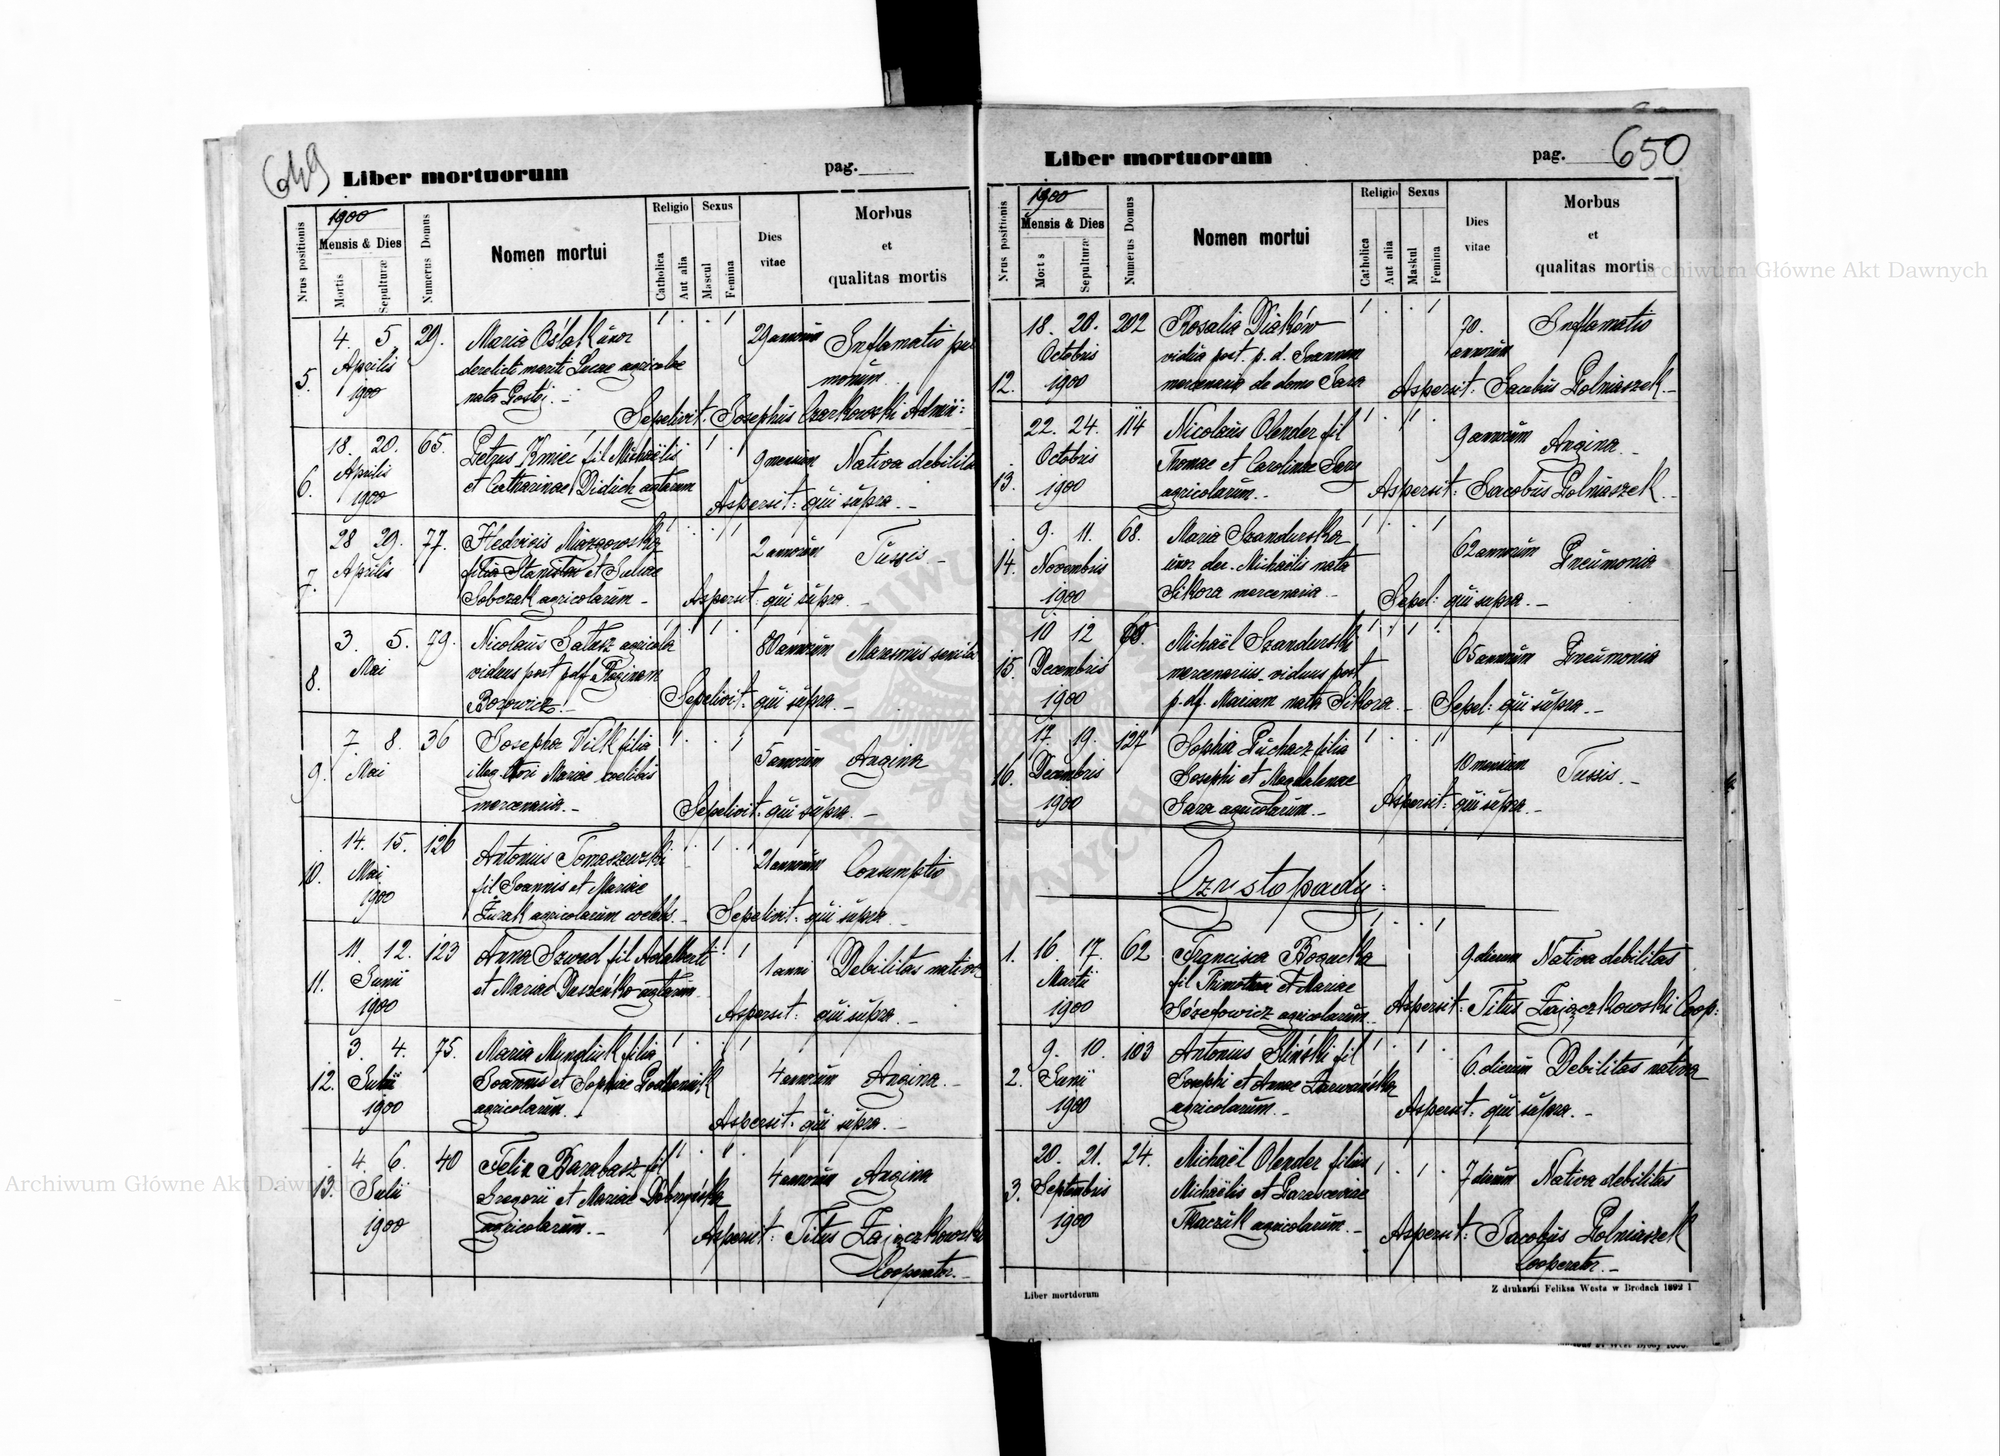 649
Liber mortuorum
pag.
Nrus positionis
1900
Mensis & Dies
Mortis
Sepulturæ
Numerus Domus
Nomen mortui
Religio
Catholica
Aut alia
Sexus
Mascul
Femina
Dies
vitae
Morbus
et
qualitas mortis
5. 4. 5 29. Maria Oślak uxor 29 annorum Inflamatio pul
Aprilis derelicti mariti Lucae agricolae monum.
1900 nata
Sepelivit: Josephus Czarkowski Admin:
6. 18. 20. 65. Petrus Kmieć fil Michaëlis 9 mensium Nativa debilita
Aprilis et Catharinae Diduch agrlarum
1900 Aspersit: qui supra. –
7. 28 29. 77. Hedvigis 2 annorum Tussis. –
Aprilis filia Stanislai et Juliae
Sobczak agricolarum – Aspersit: qui supra. –
8. 3. 5. 79. Nicolaus agricola 80 annorum Marasmus senilis
Mai viduus post pdf. Reginam
Sepelivit: qui supra. –
9. 7 8. 36 Josepha Wilk filia 5 annorum Angina
Mai illeg. thori Mariae coelibis
mercenaria. – Sepelivit: qui supra. –
10. 14. 15. 126 Antonius Tomaszewski 21 annorum Consumptio
Mai fil Joannis et Mariae
1900 Żurak agricolarum coelebs. – Sepelivit: qui supra. –
11. 11. 12. 123 Anna Szwed fil Adalberti 1 anni Debilitas nativa
Junii et Mariae
1900 Aspersit: qui supra. –
12. 3. 4. 75. Maria filia 4 annorum Angina. –
Julii Joannis et Sophiae
1900 agricolarum. – Aspersit: qui supra. –
13. 4. 6. 40 Felix Barabasz fil 4 annorum Angina
Julii Gregorii et Mariae
1900 agricolarum. – Aspersit: Titus Zajączkowski
Cooperator. –
Liber mortuorum
pag. 650
Nrus positionis
1900
Mensis & Dies
Mort s
Sepulturæ
Numerus Domus
Nomen mortui
Religio
Catholica
Aut alia
Sexus
Maskul
Femina
Dies
vitae
Morbus
et
qualitas mortis
12. 18. 20. 202 Rosalia Diaków 70. Inflamatio
Octobris vidua post. p. d. Joannem annorum
1900 mercenaria de domo Sara Aspersit: Jacobus Polniaszek. –
13. 22. 24. 114 Nicolaus Olender fil 9 annorum Angina. –
Octobris Thomae et Carolinae Sara
1900 agricolarum. – Aspersit: Jacobus Polniaszek. –
14. 9. 11. 68. Maria Szandurska 62 annorum Pneumonia
Novembris uxor der. Michaëlis nata
1900 Sikora mercenaria. – Sepel: qui supra. –
15. 10 12 68. Michaël Szandurski 65 annorum Pneumonia
Decembris mercenarius, viduus post
1900 p. df. Mariam nata Sikora. – Sepel: qui supra. –
16. 17 19. 127 Sophia Puchacz filia 10 mensium Tussis. –
Decembris Josephi et Magdalenae
1900 Sara agricolarum. – Aspersit: qui supra. –
Czystopady:
1. 16. 17. 62 Francisca Bogucka 9 dierum Nativa debilitas
Martii fil Thimothei et Mariae
1900 Józefowicz agricolarum. – Aspersit: Titus Zajączkowski Coop:
2. 9. 10. 103 Antonius Śliński fil 6. dierum Debilitas nativa
Junii Josephi et Annae
1900 agricolarum. – Aspersit: qui supra. –
3. 20. 21. 24. Michaël Olender filius 7 dierum Nativa debilitas
Septembris Michaëlis et Parasceviae
1900 Tkaczuk agricolarum. – Aspersit: Jacobus Polniaszek
Cooperator. –
Liber mortdorum
Z drukarni Feliksa Westa w Brodach 1892 1
Archiwum Główne Akt Dawnych
Archiwum Główne Akt Dawnych